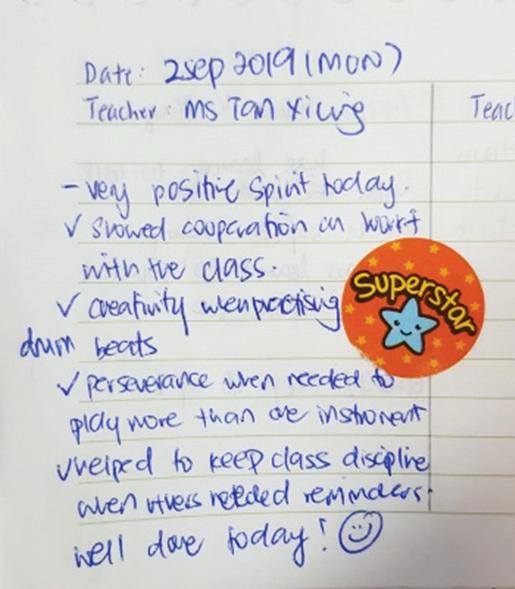 Date: 2 Sep 2019 (MON)
Teacher: Ms Tan Teac
- very positive spirit today.
✓ showed cooperation on work
with the class.
✓ creativity when practising
Superstar
drum beats
✓ perseverance when needed to
play more than one instrument
✓ helped to keep class discipline
when others needed reminders.
well done today! ☺